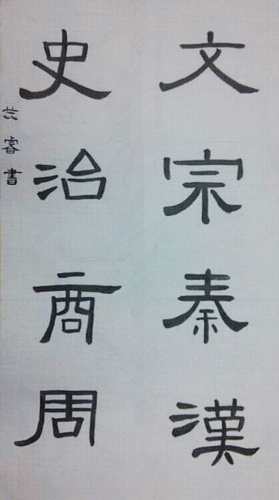 文宗秦漢
史治商周
芷睿書